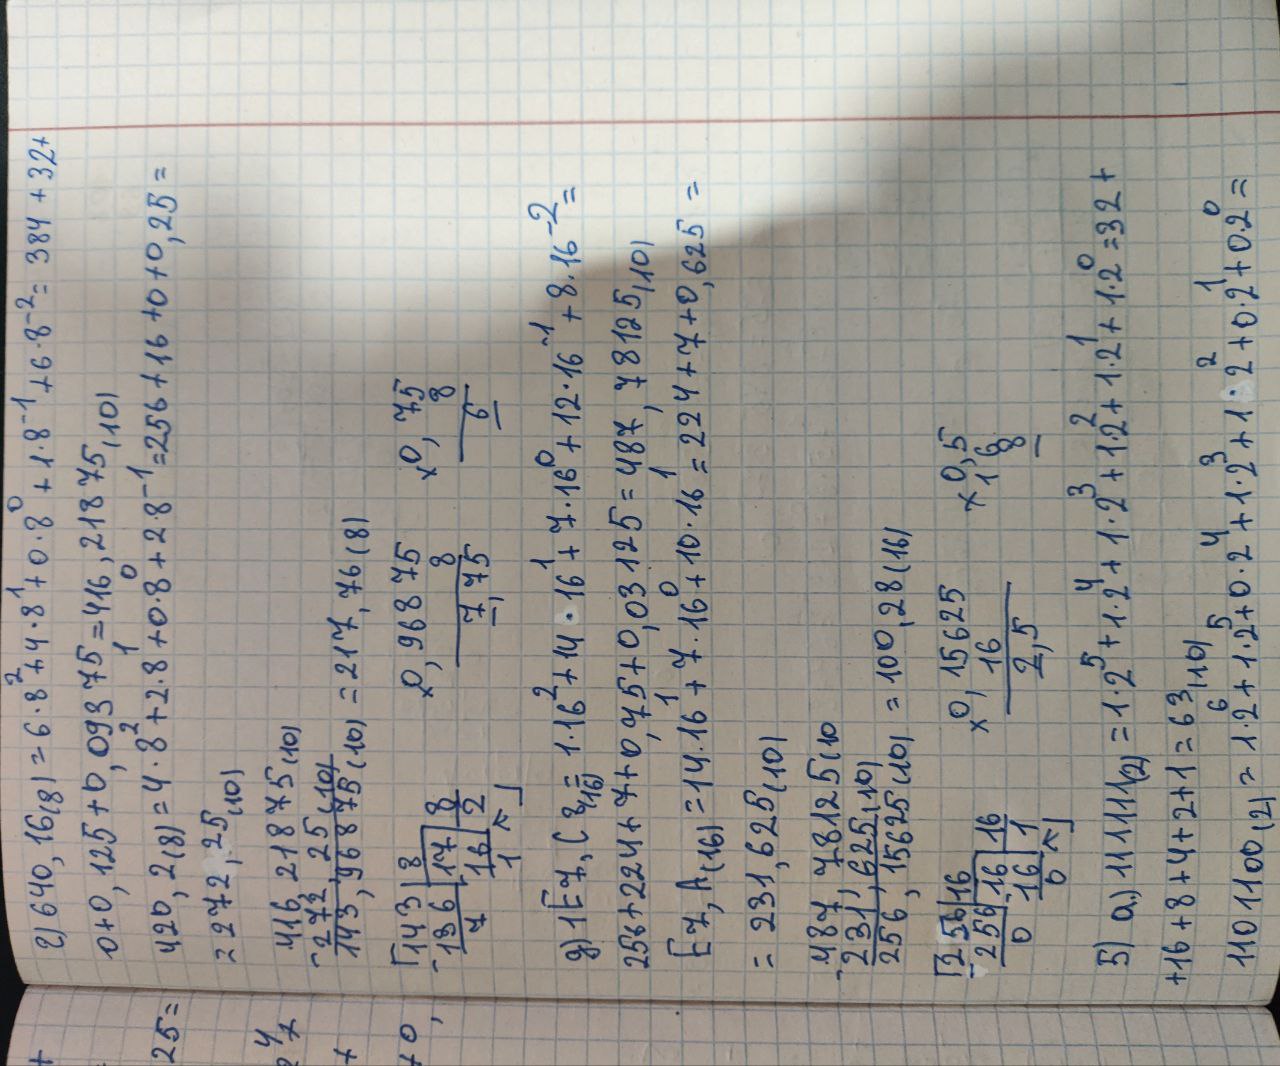 г) 640,16(8) = 6·8² + 4·8¹ + 0·8⁰ + 1·8⁻¹ + 6·8⁻² = 384 + 32 +
0 + 0,125 + 0,09375 = 416,21875(10)
420,2(8) = 4·8² + 2·8¹ + 0·8⁰ + 2·8⁻¹ = 256 + 16 + 0 + 0,25 =
= 272,25(10)
416,21875(10)
- 272,25(10)
143,96875(10) = 217,76(8)
143 | 8 ×0,96875 ×0,75
- 136 | 17 | 8 8 8
7 16 | 2 7,75 6
1
д) 1E7,C8(16) = 1·16² + 14·16¹ + 7·16⁰ + 12·16⁻¹ + 8·16⁻² =
256 + 224 + 7 + 0,75 + 0,03125 = 487,78125(10)
E7,A(16) = 14·16¹ + 7·16⁰ + 10·16¹ = 224 + 7 + 0,625 =
= 231,625(10)
- 487,78125(10
231,625(10)
256,15625(10) = 100,28(16)
256 | 16 ×0,15625 ×0,5
- 256 | 16 | 16 16 16
0 - 16 | 1 2,5 8
0
5) а) 111111(2) = 1·2⁵ + 1·2⁴ + 1·2³ + 1·2² + 1·2¹ + 1·2⁰ = 32 +
+ 16 + 8 + 4 + 2 + 1 = 63(10)
1101100(2) = 1·2⁶ + 1·2⁵ + 0·2⁴ + 1·2³ + 1·2² + 0·2¹ + 0·2⁰ =
25 =